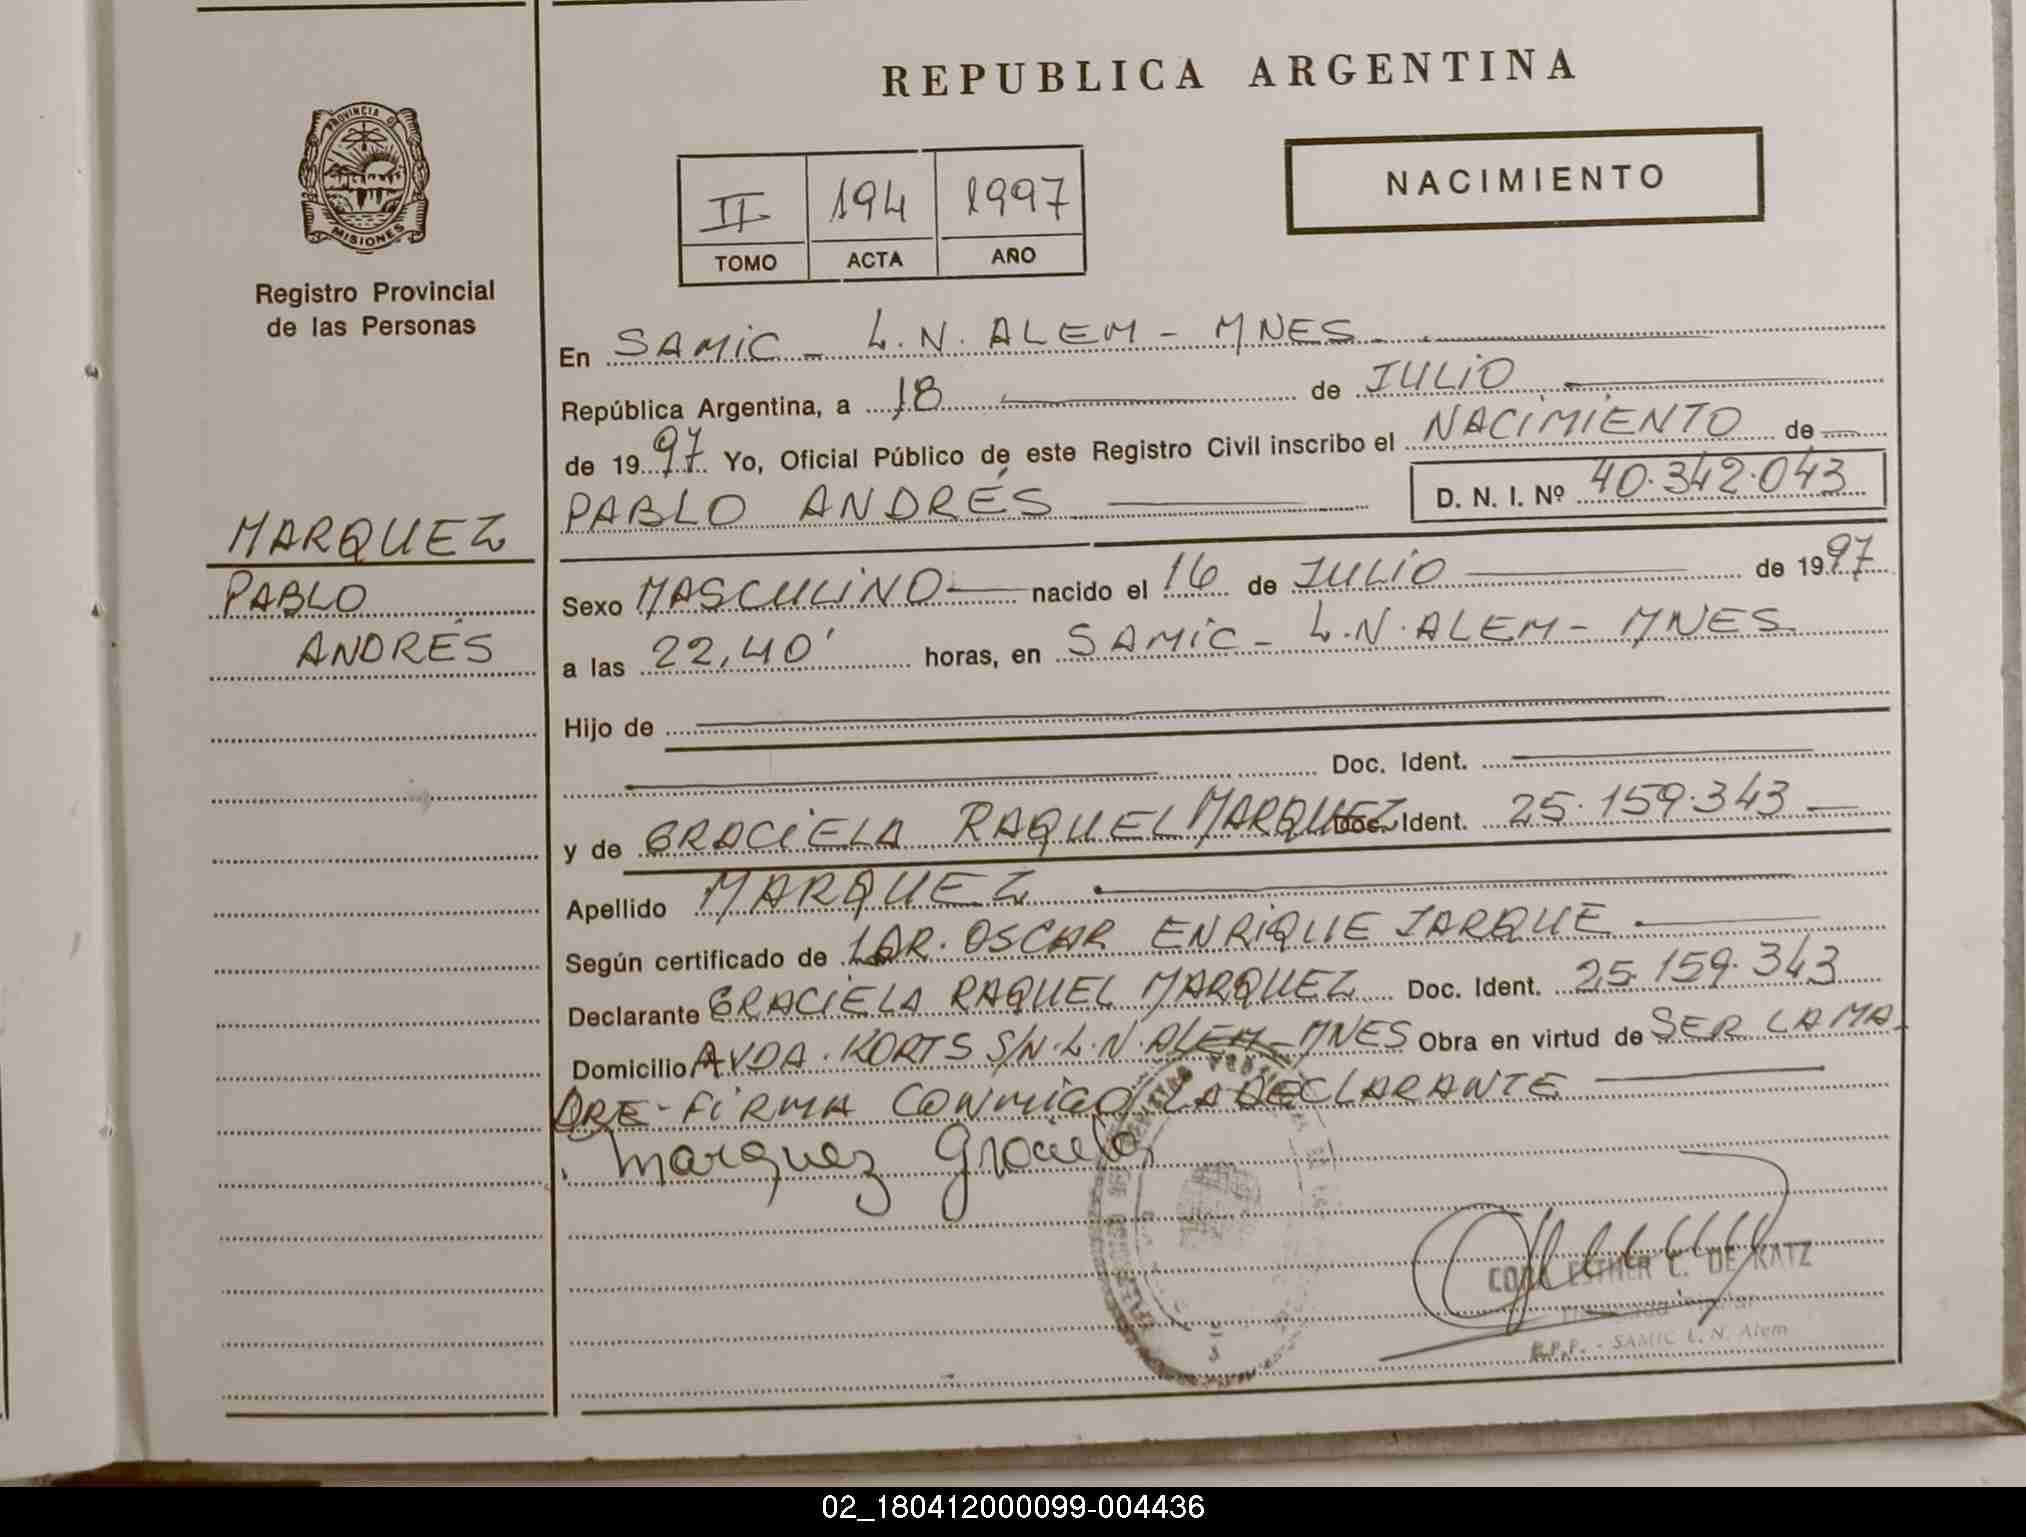 REPUBLICA ARGENTINA
PROVINCIA DE
MISIONES
Registro Provincial
de las Personas
II 194 1997
TOMO ACTA AÑO
NACIMIENTO
MARQUEZ
PABLO
ANDRÉS
En SAMIC - L.N. ALEM - MNES
República Argentina, a 18 de JULIO
de 1997 Yo, Oficial Público de este Registro Civil inscribo el NACIMIENTO de
PABLO ANDRÉS D. N. I. Nº 40.342.043
Sexo MASCULINO nacido el 16 de JULIO de 1997
a las 22,40' horas, en SAMIC - L.N. ALEM - MNES
Hijo de
Doc. Ident.
y de GRACIELA RAQUEL MARQUEZ Doc. Ident. 25.159.343
Apellido MARQUEZ
Según certificado de DR. OSCAR ENRIQUE JARQUE
Declarante GRACIELA RAQUEL MARQUEZ Doc. Ident. 25.159.343
Domicilio AVDA. KORTS S/N. L.N. ALEM - MNES Obra en virtud de SER LA MA-
DRE - FIRMA CONMIGO LA DECLARANTE
Marquez Graciela
ESTHER C. DE KATZ
R.P.P. - SAMIC L. N. Alem
02_180412000099-004436